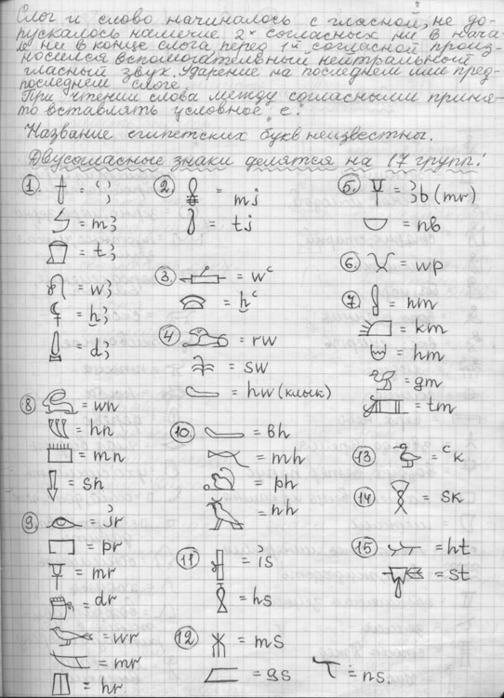 Слог и слово начиналось с гласной, не до-
пускалось наличие 2х согласных ни в нача-
ле ни в конце слога, перед 1й согласной произ-
носился вспомогательный нейтральный
гласный звук. Ударение на последнем или пред-
последнем слоге.
При чтении слова между согласными приня-
то вставлять условное „е".
Название египетских букв неизвестны.
Двусогласные знаки делятся на 17 групп:
①
= mꜣ
= tꜣ
= wꜣ
= ẖꜣ
= dꜣ
②
= mi
= ti
③
= wc
= ẖc
④
= rw
= sw
= hw (клык)
⑤ = ꜣb (mr)
= nb
⑥ = wp
⑦ = hm
= km
= hm
= gm
= tm
⑧ = wn
= hn
= mn
= sn
⑨ = jr
= pr
= mr
= dr
= wr
= mr
= hr
⑩ = bh
= mh
= ph
= nh
⑪ = is
= hs
⑫ = ms
= gs
= ns.
⑬ = ck
⑭ = sk
⑮ = ht
= st